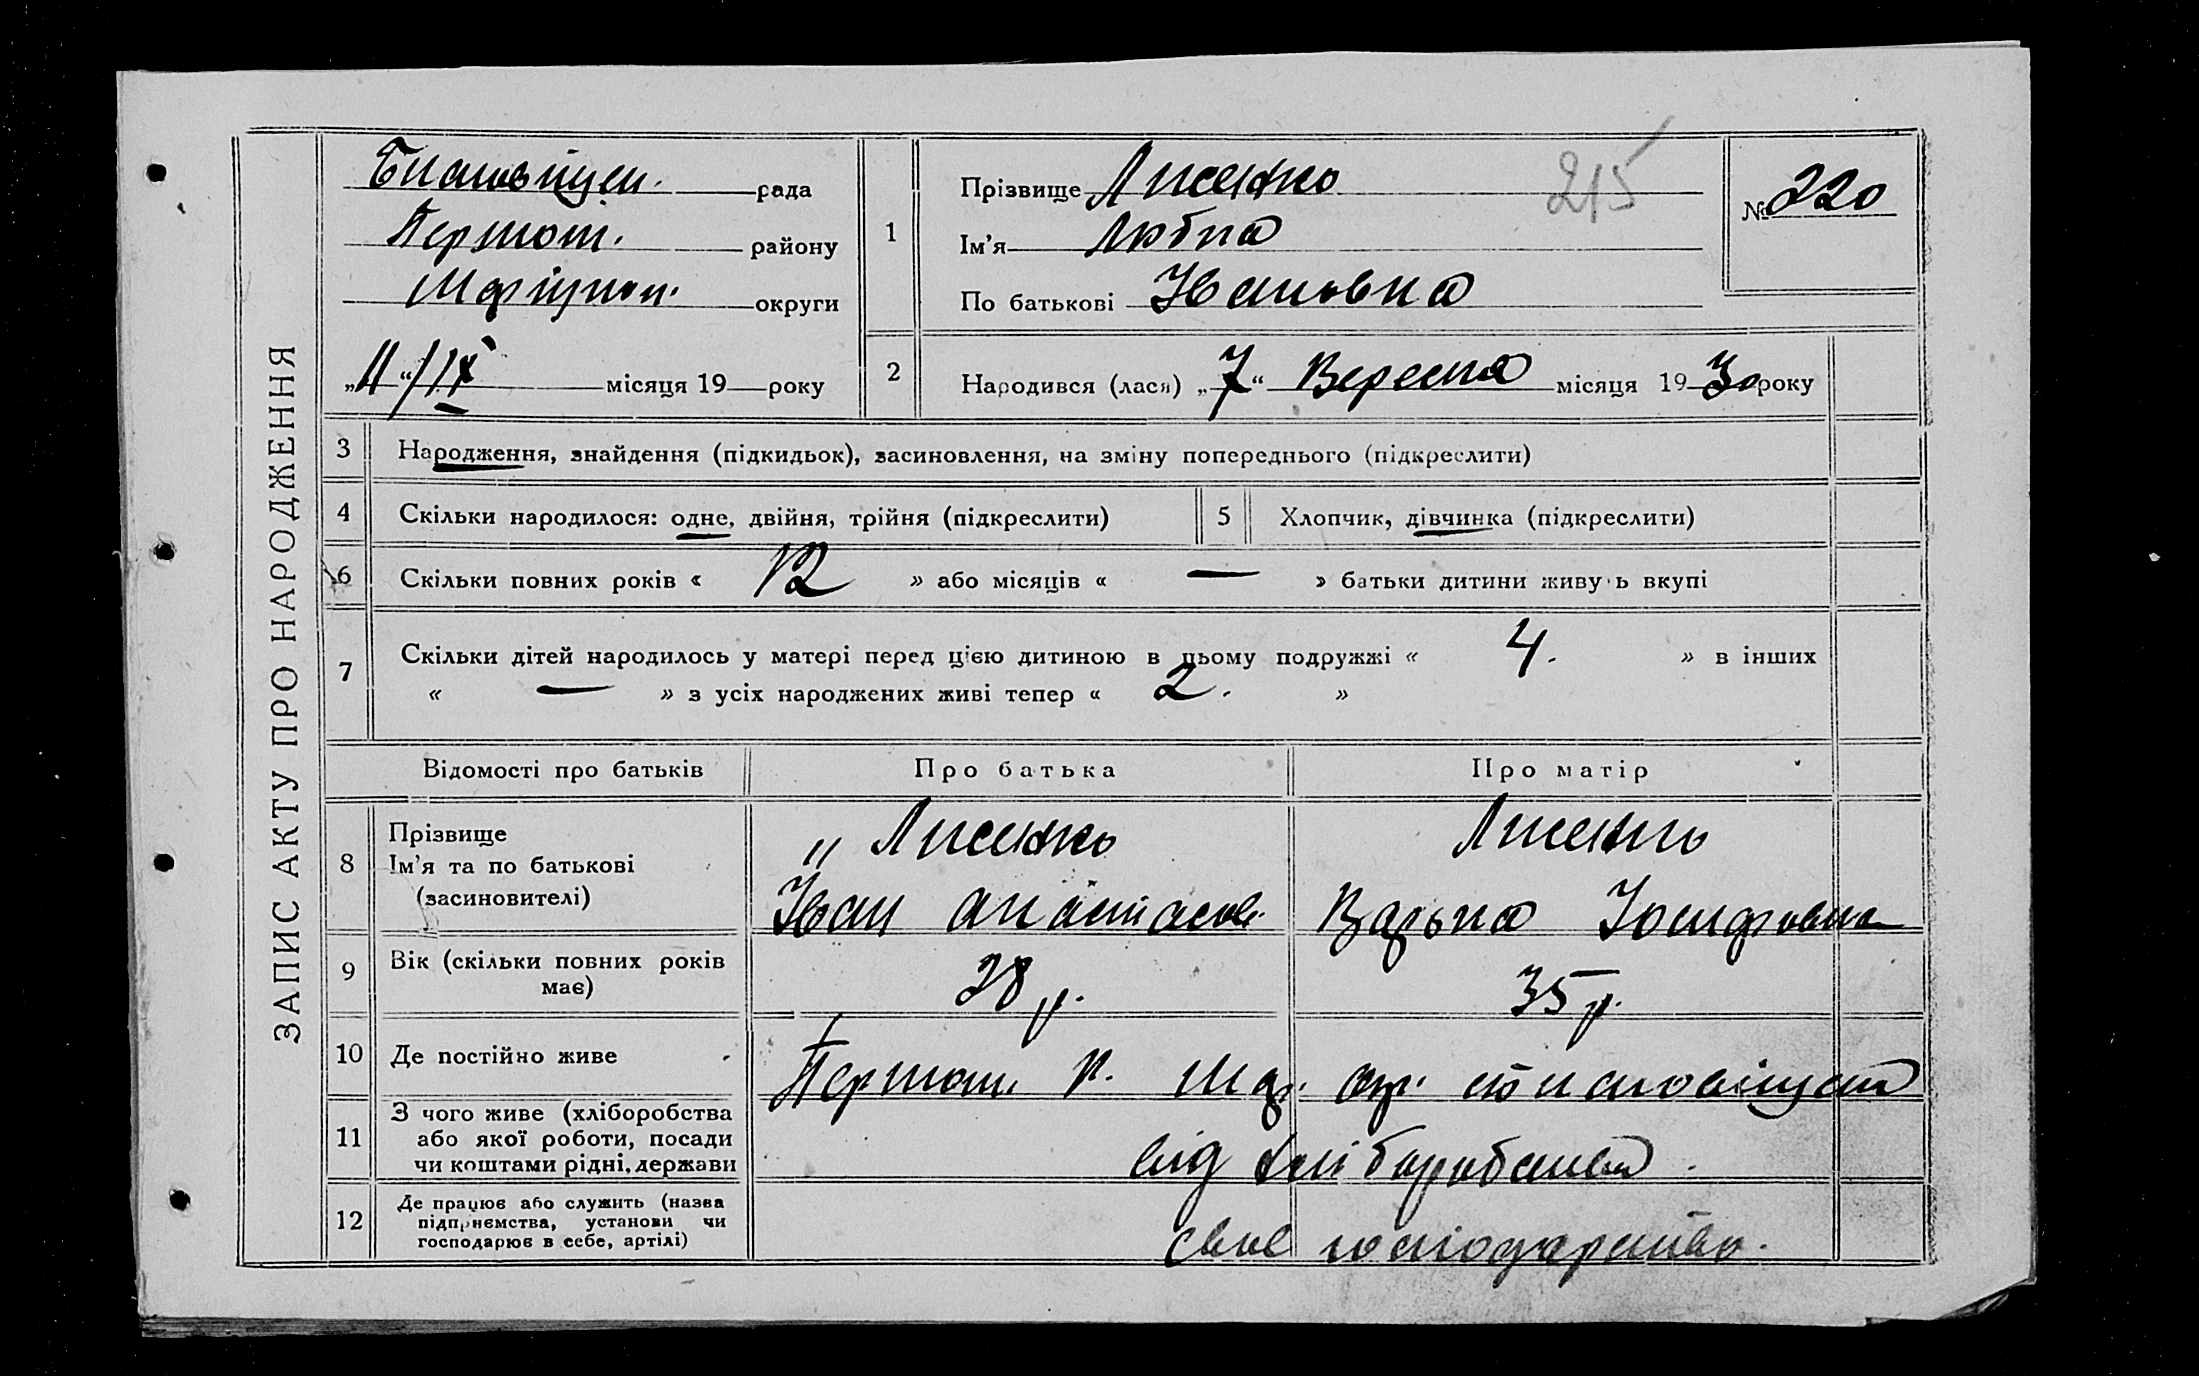 ЗАПИС АКТУ ПРО НАРОДЖЕННЯ
рада
Першот. району
Маріупол. округи
„11“/IX місяця 19 року
1
Прізвище Лисенко
Ім'я Любпа
По батькові Ивановна
215
№ 220
2
Народився (лася) „7“ Вересня місяця 1930 року
3
Народження, знайдення (підкидьок), засиновлення, на зміну попереднього (підкреслити)
4
Скільки народилося: одне, двійня, трійня (підкреслити)
5
Хлопчик, дівчинка (підкреслити)
6
Скільки повних років « 12 » або місяців « — » батьки дитини живуть вкупі
7
Скільки дітей народилось у матері перед цією дитиною в цьому подружжі « 4. » в інших
« — » з усіх народжених живі тепер « 2. »
Відомості про батьків
Про батька
Про матір
8
Прізвище
Ім'я та по батькові
(засиновителі)
„ Лисенко
Иван Анастасов.
Лисенко
Варька Иосифовна
9
Вік (скільки повних років
має)
38 р.
35 р.
10
Де постійно живе
Першот. р. Мар. окр.
11
З чого живе (хліборобства
або якої роботи, посади
чи коштами рідні, держави
від хліборобства.
12
Де працює або служить (назва
підприємства, установи чи
господарює в себе, артілі)
своє господарство.